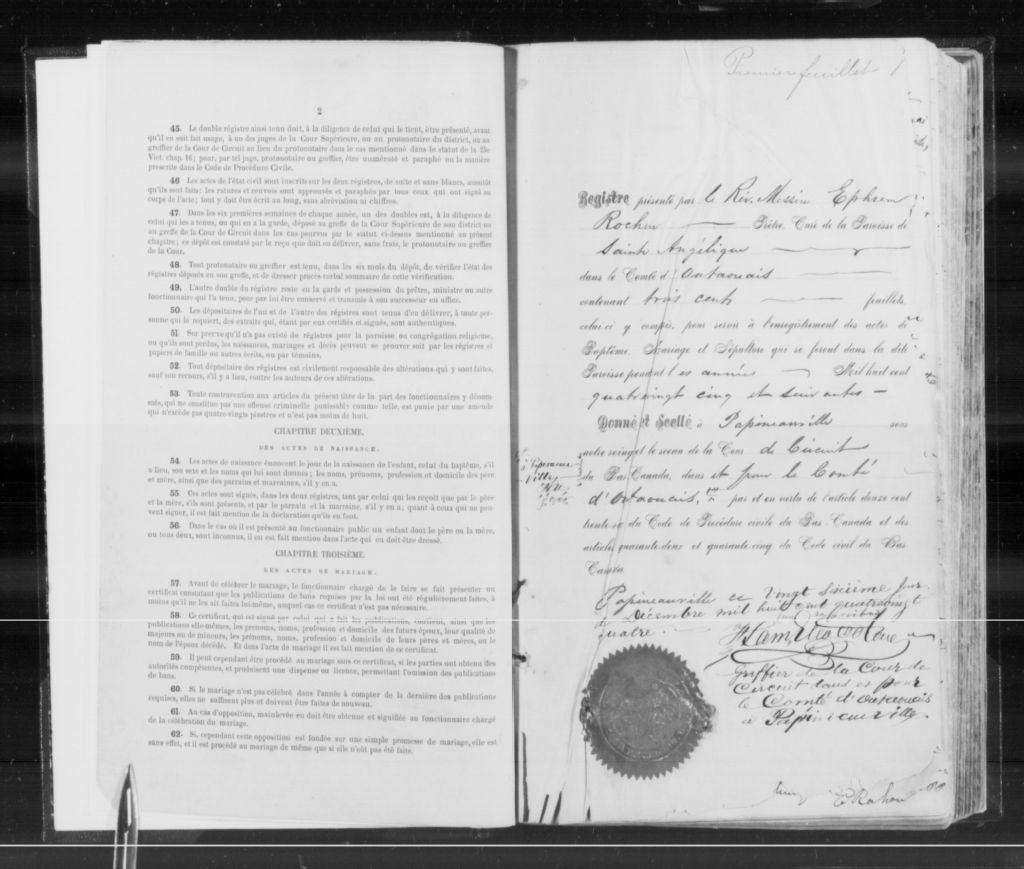 2
45. Le double régistre ainsi tenu doit, à la diligence de celui qui le tient, être présenté, avant
qu'il en soit fait usage, à un des juges de la Cour Supérieure, ou au protonotaire du district, ou au
greffier de la Cour de Circuit au lieu du protonotaire dans le cas mentionné dans le statut de la 25e
Vict. chap. 16; pour, par tel juge, protonotaire ou greffier, être numéroté et paraphé en la manière
prescrite dans le Code de Procédure Civile.
46 Les actes de l'état civil sont inscrits sur les deux régistres, de suite et sans blancs, aussitôt
qu'ils sont faits: les ratures et renvois sont approuvés et paraphés par tous ceux qui ont signé au
corps de l'acte; tout y doit être écrit au long, sans abréviation ni chiffres.
47. Dans les six premières semaines de chaque année, un des doubles est, à la diligence de
celui qui les a tenus, ou qui en a la garde, déposé au greffe de la Cour Supérieure de son district ou
au greffe de la Cour de Circuit dans les cas pourvus par le statut ci-dessus mentionné au présent
chapitre; ce dépôt est constaté par le reçu que doit en délivrer, sans frais, le protonotaire ou greffier
de la Cour.
48. Tout protonotaire ou greffier est tenu, dans les six mois du dépôt, de vérifier l'état des
régistres déposés en son greffe, et de dresser procès-verbal sommaire de cette vérification.
49. L'autre double du régistre reste en la garde et possession du prêtre, ministre ou autre
fonctionnaire qui l'a tenu, pour par lui être conservé et transmis à son successeur en office.
50. Les dépositaires de l'un et de l'autre des régistres sont tenus d'en délivrer, à toute per-
sonne qui le requiert, des extraits qui, étant par eux certifiés et signés, sont authentiques.
51. Sur preuve qu'il n'a pas existé de régistres pour la paroisse ou congrégation religieuse,
ou qu'ils sont perdus, les naissances, mariages et décès peuvent se prouver soit par les régistres et
papiers de famille ou autres écrits, ou par témoins.
52. Tout dépositaire des régistres est civilement responsable des altérations qui y sont faites,
sauf son recours, s'il y a lieu, contre les auteurs de ces altérations.
53. Toute contravention aux articles du présent titre de la part des fonctionnaires y dénom-
més, qui ne constitue pas une offense criminelle punissable comme telle, est punie par une amende
qui n'excède pas quatre-vingts piastres et n'est pas moins de huit.
CHAPITRE DEUXIÈME.
DES ACTES DE NAISSANCE.
54. Les actes de naissance énoncent le jour de la naissance de l'enfant, celui du baptême, s'il
a lieu, son sexe et les noms qui lui sont donnés; les noms, prénoms, profession et domicile des père
et mère, ainsi que des parrains et marraines, s'il y en a.
55. Ces actes sont signés, dans les deux régistres, tant par celui qui les reçoit que par le père
et la mère, s'ils sont présents, et par le parrain et la marraine, s'il y en a; quant à ceux qui ne peu-
vent signer, il est fait mention de la déclaration qu'ils en font.
56. Dans le cas où il est présenté au fonctionnaire public un enfant dont le père ou la mère,
ou tous deux, sont inconnus, il en est fait mention dans l'acte qui en doit être dressé.
CHAPITRE TROISIÈME.
DES ACTES DE MARIAGE.
57. Avant de célébrer le mariage, le fonctionnaire chargé de le faire se fait présenter un
certificat constatant que les publications de bans requises par la loi ont été régulièrement faites, à
moins qu'il ne les ait faites lui-même, auquel cas ce certificat n'est pas nécessaire.
58. Ce certificat, qui est signé par celui qui a fait les publications, contient, ainsi que les
publications elle-mêmes, les prénoms, noms, profession et domicile des futurs époux, leur qualité de
majeurs ou de mineurs, les prénoms, noms, profession et domicile de leurs pères et mères, ou le
nom de l'époux décédé. Et dans l'acte de mariage il est fait mention de ce certificat.
59. Il peut cependant être procédé au mariage sans ce certificat, si les parties ont obtenu des
autorités compétentes, et produisent une dispense ou licence, permettant l'omission des publications
de bans.
60. Si le mariage n'est pas célébré dans l'année à compter de la dernière des publications
requises, elles ne suffisent plus et doivent être faites de nouveau.
61. Au cas d'opposition, mainlevée en doit être obtenue et signifiée au fonctionnaire chargé
de la célébration du mariage.
62. Si, cependant cette opposition est fondée sur une simple promesse de mariage, elle est
sans effet, et il est procédé au mariage de même que si elle n'eût pas été faite.
Premier feuillet 1
Registre présenté par le Rév. Messire Ephrem
Rochon Prêtre, Curé de la Paroisse de
Sainte Angélique
dans le Comté d'Outaouais
contenant trois cents feuillets,
celui-ci y compris, pour servir à l'enregistrement des actes de
Baptême, Mariage et Sépulture qui se feront dans la dite
Paroisse pendant les années Mil huit cent
quatrevingt cinq et suivantes
Donné et Scellé à Papineauville sous
notre seing et le sceau de la Cour de Circuit
du Bas-Canada, dans et pour le Comté
d'Outaouais, par et en vertu de l'article douze cent
trente-six du Code de Procédure civile du Bas-Canada et des
articles quarante-deux et quarante-cinq du Code civil du Bas-
Canada.
à Papineau-
ville
Papineauville ce vingt sixième jour
de Décembre mil huit cent quatrevingt
quatre.
Greffier de la Cour de
Circuit dans et pour
le Comté d'Outaouais
à Papineauville
E Rochon